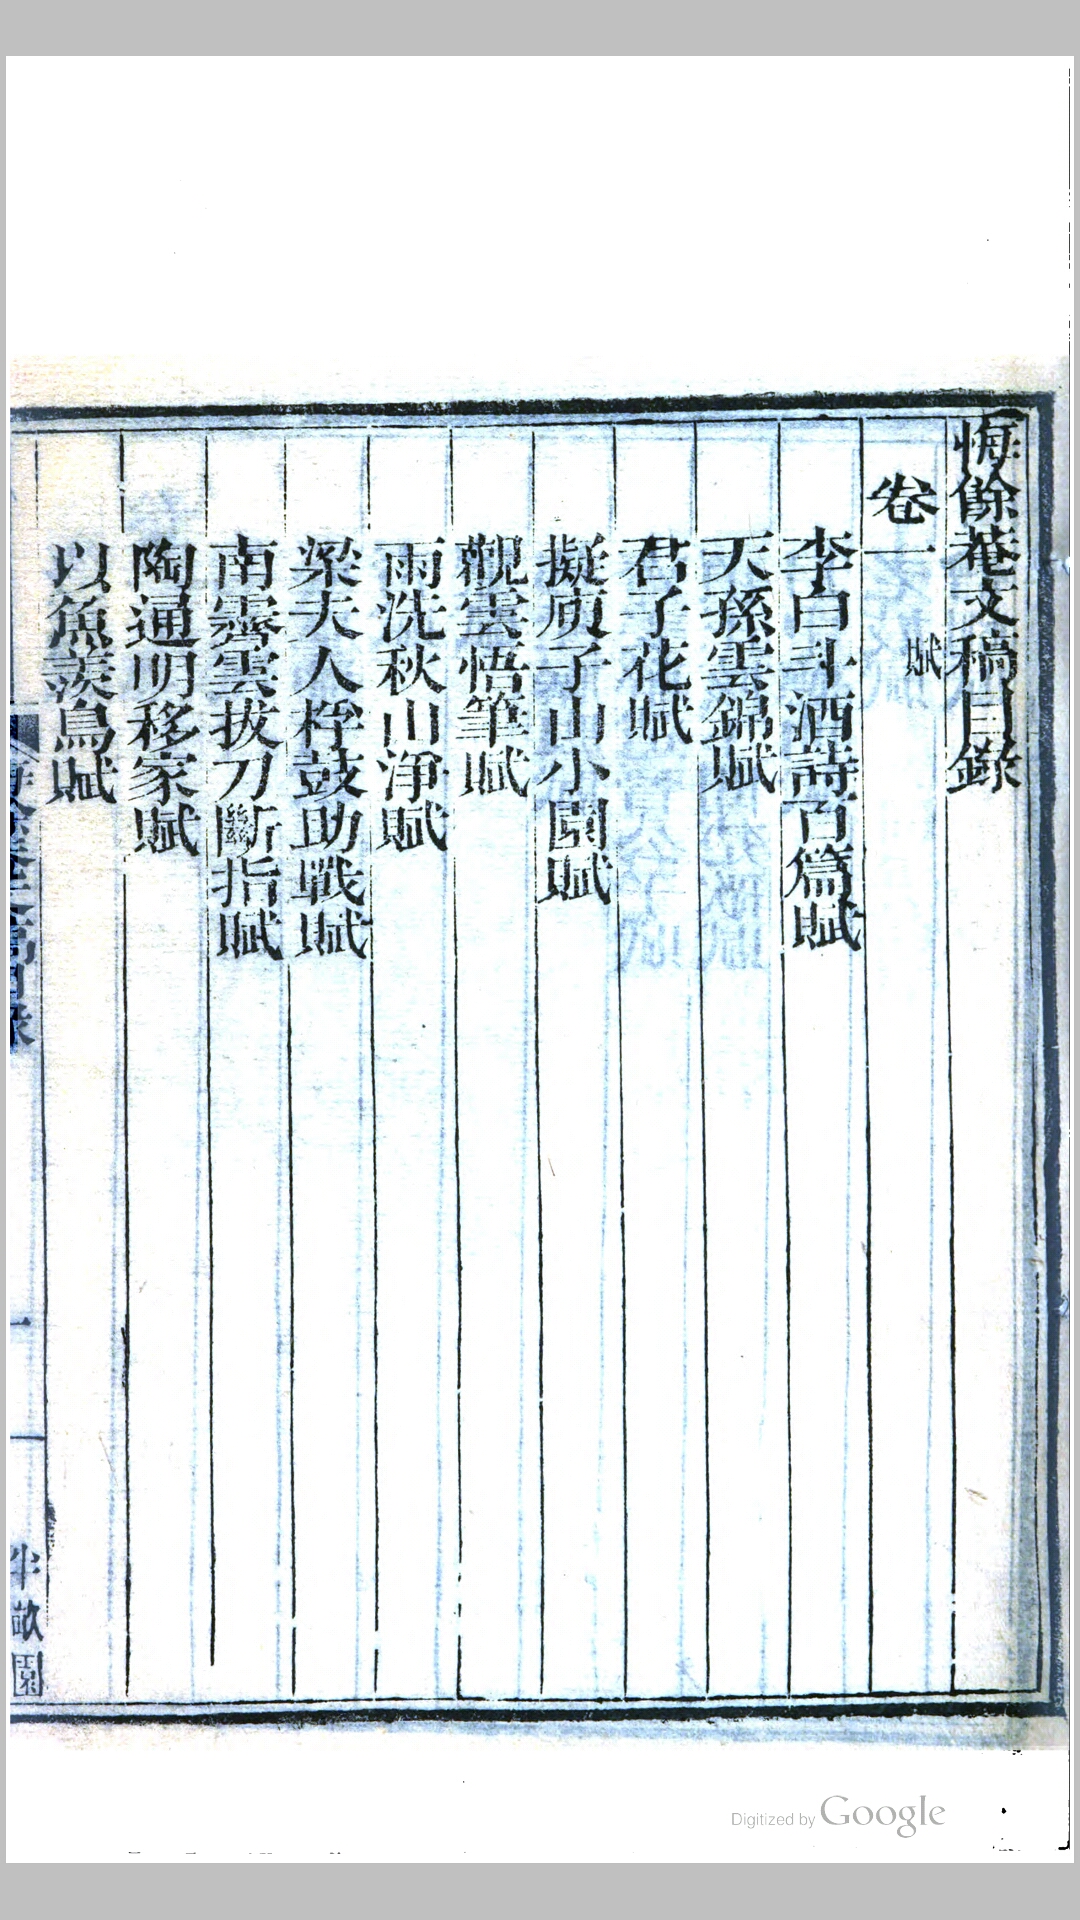 悔餘菴文稿目錄
卷一 賦
李白斗酒詩百篇賦
天孫雲錦賦
君子花賦
擬庾子山小園賦
觀雲悟筆賦
雨洗秋山淨賦
梁夫人桴鼓助戰賦
南霽雲拔刀斷指賦
陶通明移家賦
以魚羨鳥賦
一
半畝園
Digitized by Google